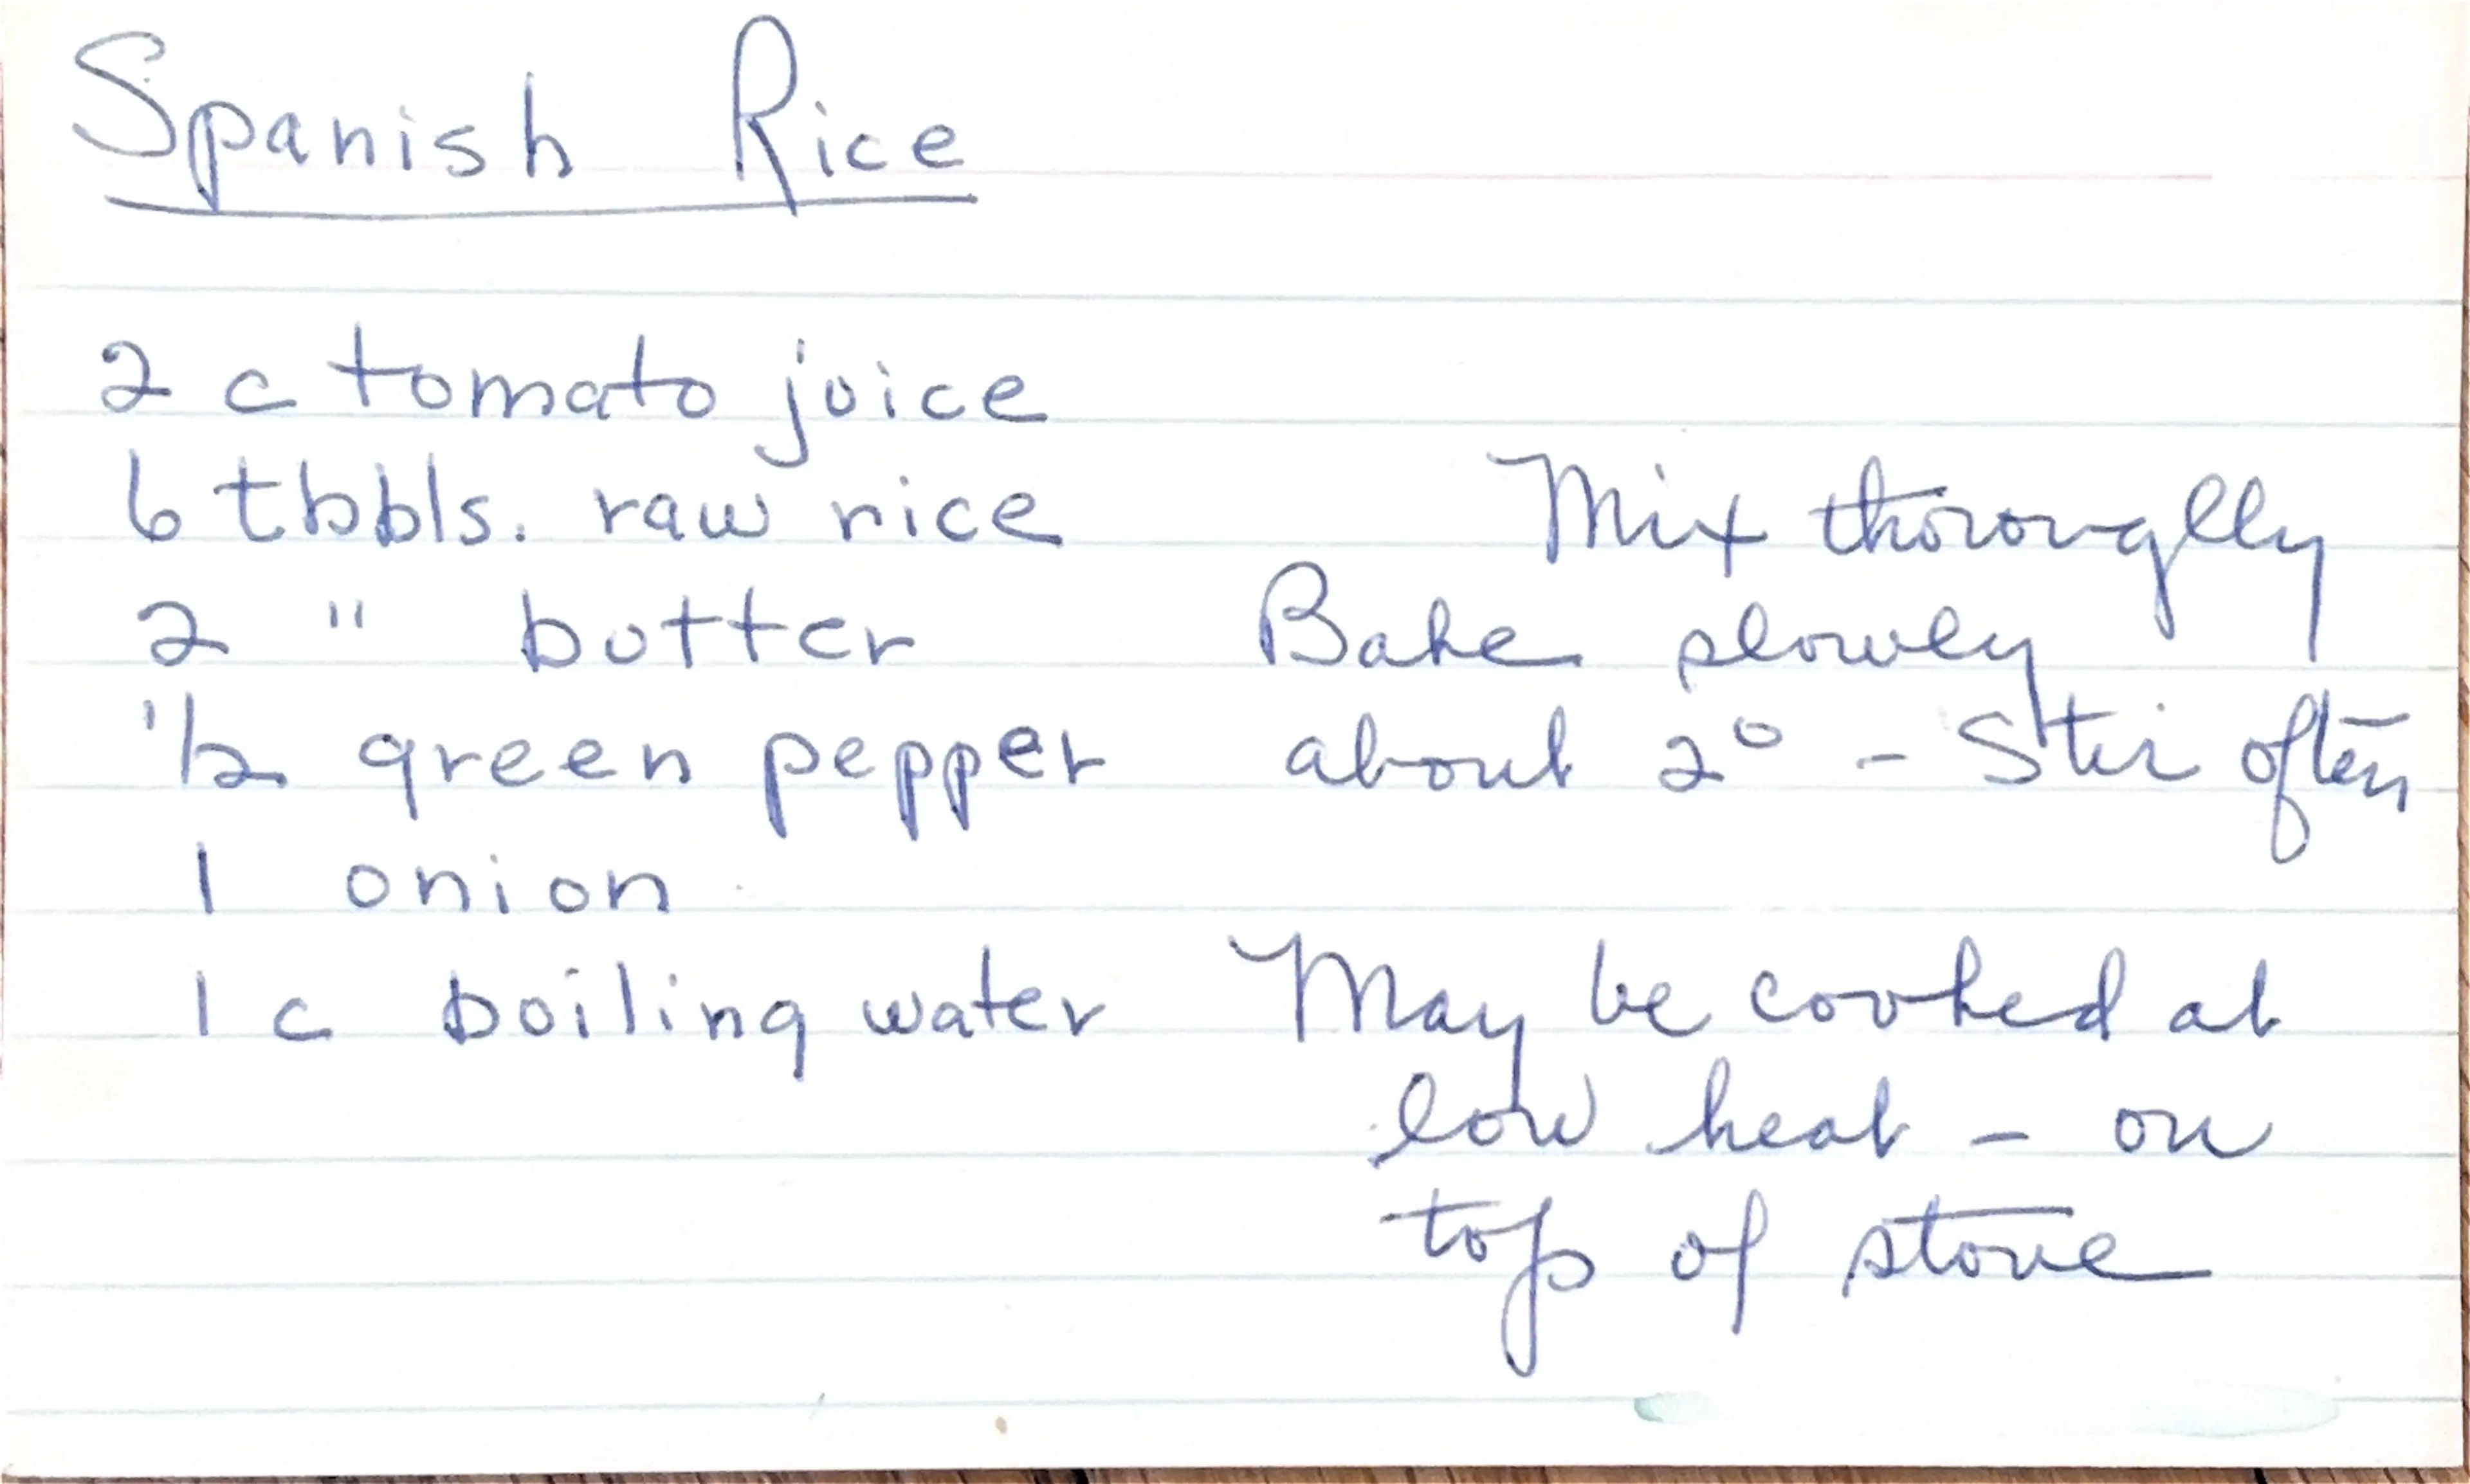 Spanish Rice
2 c tomato juice
6 tbbls. raw rice
2 " butter
1/2 green pepper
1 onion
1 c boiling water
Mix thoroughly
Bake slowly
about 2° - Stir often
May be cooked at
low heat - on
top of stove